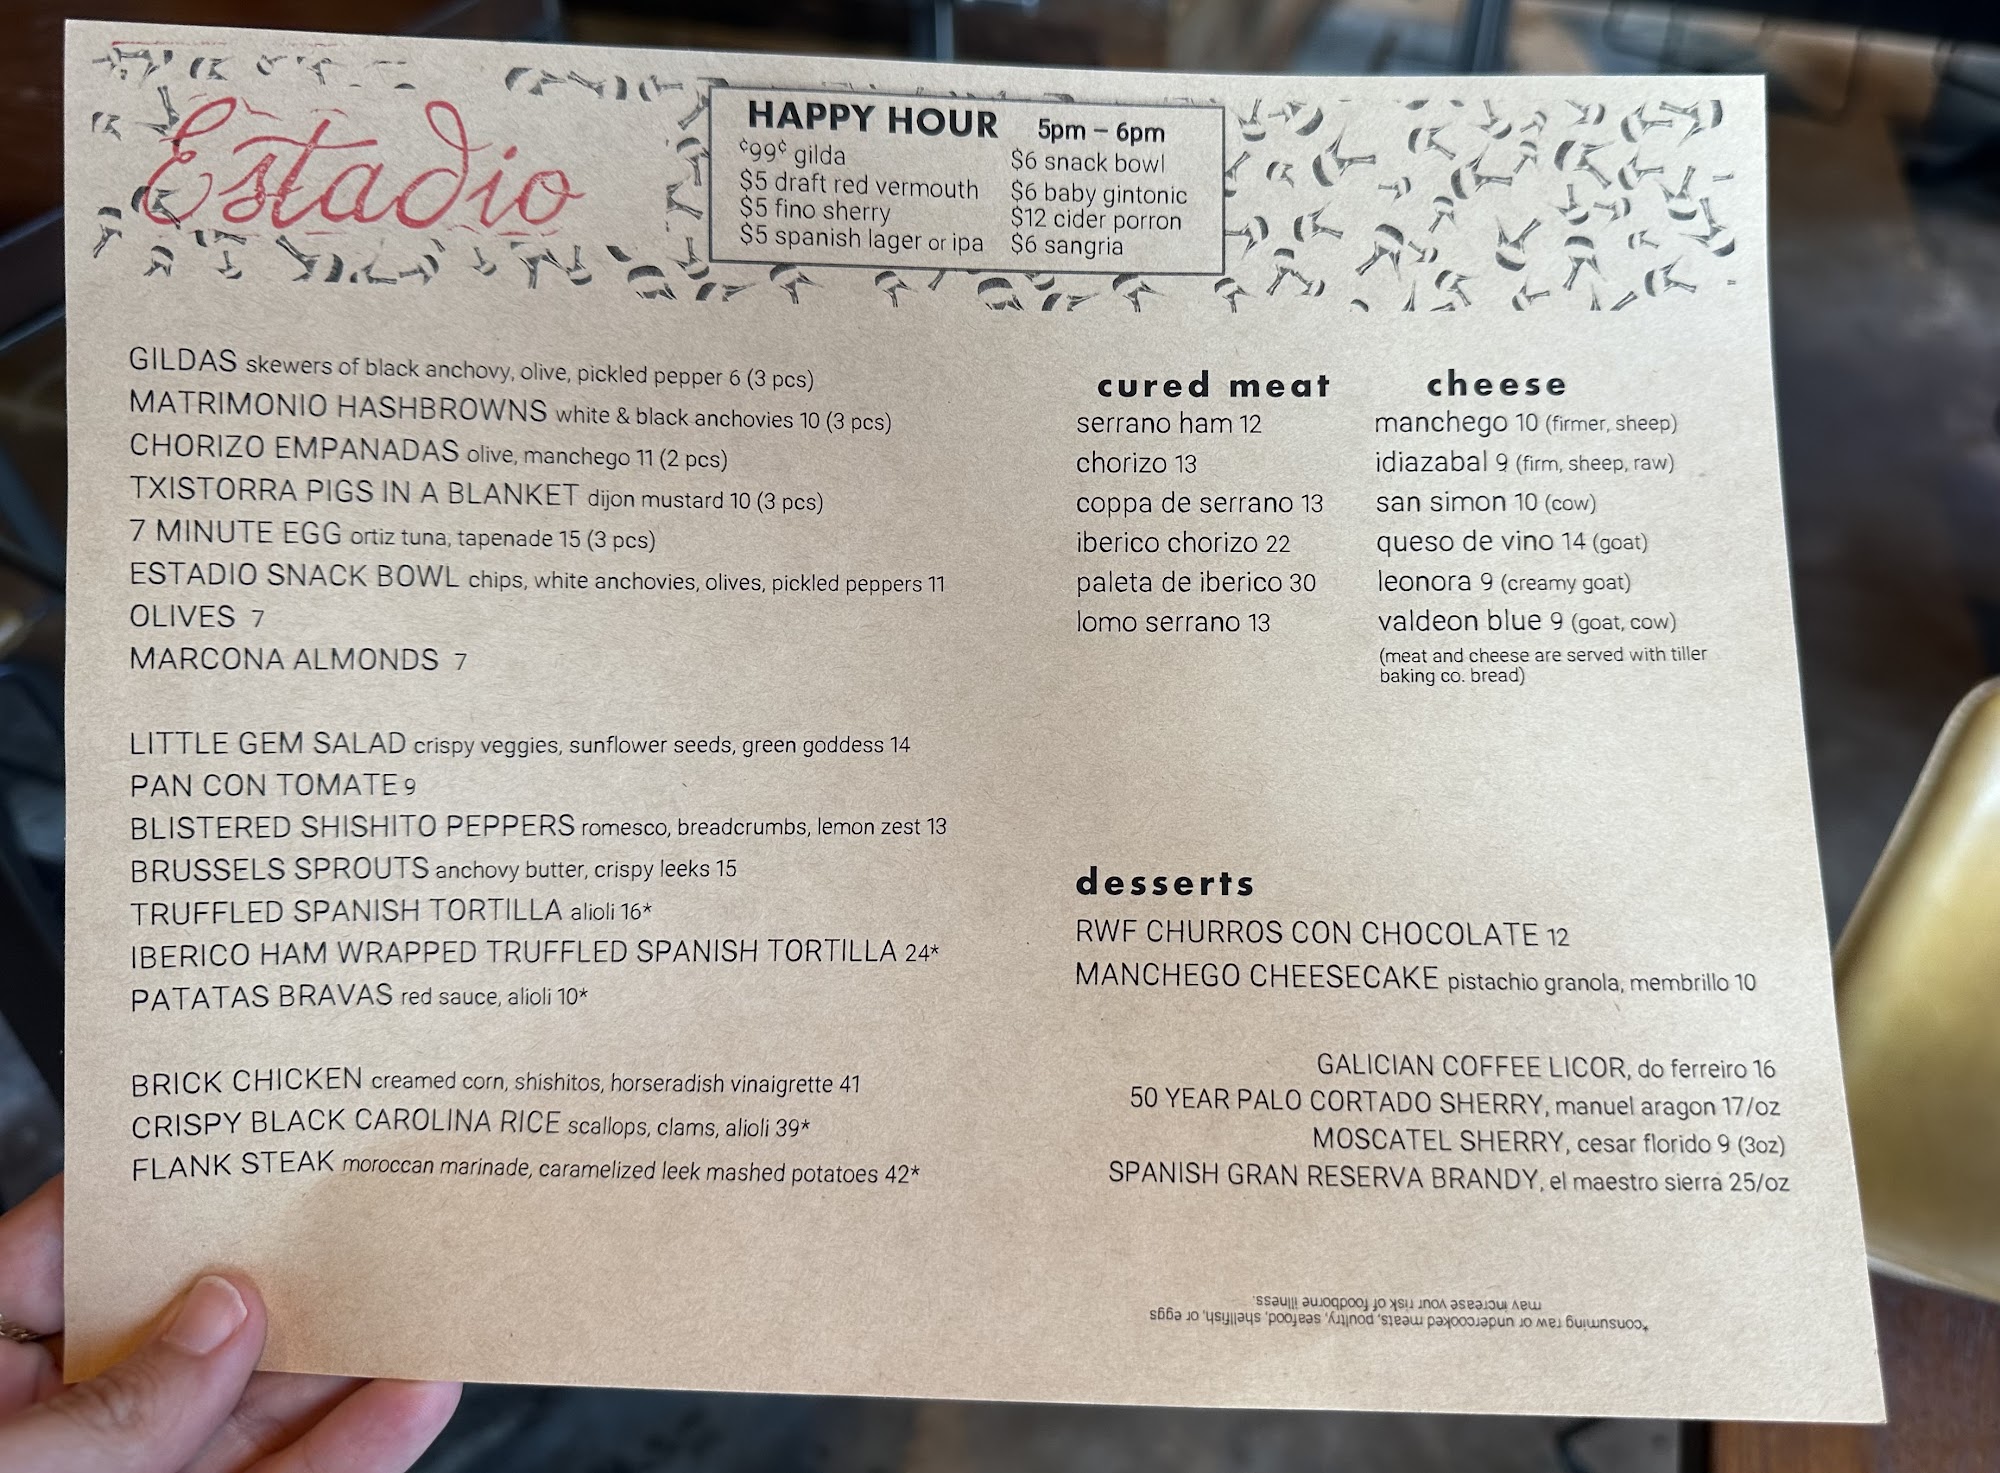 Estadio
HAPPY HOUR 5pm – 6pm
¢99¢ gilda
$5 draft red vermouth
$5 fino sherry
$5 spanish lager or ipa
$6 snack bowl
$6 baby gintonic
$12 cider porron
$6 sangria
GILDAS skewers of black anchovy, olive, pickled pepper 6 (3 pcs)
MATRIMONIO HASHBROWNS white & black anchovies 10 (3 pcs)
CHORIZO EMPANADAS olive, manchego 11 (2 pcs)
TXISTORRA PIGS IN A BLANKET dijon mustard 10 (3 pcs)
7 MINUTE EGG ortiz tuna, tapenade 15 (3 pcs)
ESTADIO SNACK BOWL chips, white anchovies, olives, pickled peppers 11
OLIVES 7
MARCONA ALMONDS 7
LITTLE GEM SALAD crispy veggies, sunflower seeds, green goddess 14
PAN CON TOMATE 9
BLISTERED SHISHITO PEPPERS romesco, breadcrumbs, lemon zest 13
BRUSSELS SPROUTS anchovy butter, crispy leeks 15
TRUFFLED SPANISH TORTILLA alioli 16*
IBERICO HAM WRAPPED TRUFFLED SPANISH TORTILLA 24*
PATATAS BRAVAS red sauce, alioli 10*
BRICK CHICKEN creamed corn, shishitos, horseradish vinaigrette 41
CRISPY BLACK CAROLINA RICE scallops, clams, alioli 39*
FLANK STEAK moroccan marinade, caramelized leek mashed potatoes 42*
cured meat
serrano ham 12
chorizo 13
coppa de serrano 13
iberico chorizo 22
paleta de iberico 30
lomo serrano 13
cheese
manchego 10 (firmer, sheep)
idiazabal 9 (firm, sheep, raw)
san simon 10 (cow)
queso de vino 14 (goat)
leonora 9 (creamy goat)
valdeon blue 9 (goat, cow)
(meat and cheese are served with tiller
baking co. bread)
desserts
RWF CHURROS CON CHOCOLATE 12
MANCHEGO CHEESECAKE pistachio granola, membrillo 10
GALICIAN COFFEE LICOR, do ferreiro 16
50 YEAR PALO CORTADO SHERRY, manuel aragon 17/oz
MOSCATEL SHERRY, cesar florido 9 (3oz)
SPANISH GRAN RESERVA BRANDY, el maestro sierra 25/oz
*consuming raw or undercooked meats, poultry, seafood, shellfish, or eggs
may increase your risk of foodborne illness.